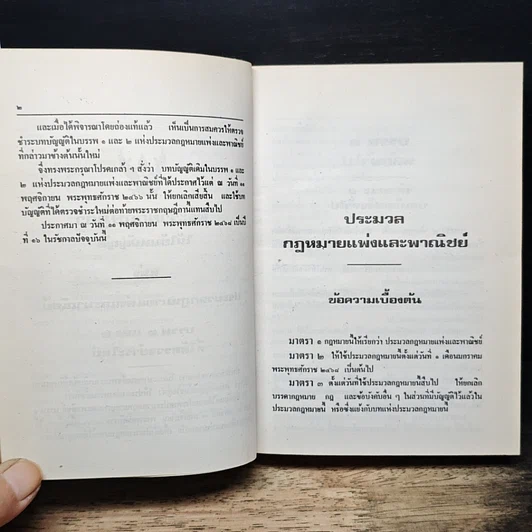 ๒
และเมื่อได้พิจารณาโดยถ่องแท้แล้ว เห็นเป็นการสมควรให้ตรวจ
ชำระบทบัญญัติในบรรพ ๑ และ ๒ แห่งประมวลกฎหมายแพ่งและพาณิชย์
ที่กล่าวมาข้างต้นนั้นใหม่
จึงทรงพระกรุณาโปรดเกล้า ฯ สั่งว่า บทบัญญัติเดิมในบรรพ ๑ และ
๒ แห่งประมวลกฎหมายแพ่งและพาณิชย์ที่ได้ประกาศไว้แต่ ณ วันที่ ๑๑
พฤศจิกายน พระพุทธศักราช ๒๔๖๖ นั้น ให้ยกเลิกเสียสิ้น และให้ใช้บท
บัญญัติที่ได้ตรวจชำระใหม่ต่อท้ายพระราชกฤษฎีกานี้แทนสืบไป
ประกาศมา ณ วันที่ ๑๑ พฤศจิกายน พระพุทธศักราช ๒๔๖๘ เป็นปี
ที่ ๑๖ ในรัชกาลปัจจุบันนี้
ประมวล
กฎหมายแพ่งและพาณิชย์
ข้อความเบื้องต้น
มาตรา ๑ กฎหมายนี้ให้เรียกว่า ประมวลกฎหมายแพ่งและพาณิชย์
มาตรา ๒ ให้ใช้ประมวลกฎหมายนี้ตั้งแต่วันที่ ๑ เดือนมกราคม
พระพุทธศักราช ๒๔๖๘ เป็นต้นไป
มาตรา ๓ ตั้งแต่วันที่ใช้ประมวลกฎหมายนี้สืบไป ให้ยกเลิก
บรรดากฎหมาย กฎ และข้อบังคับอื่น ๆ ในส่วนที่มีบัญญัติไว้แล้วใน
ประมวลกฎหมายนี้ หรือซึ่งแย้งกับบทแห่งประมวลกฎหมายนี้